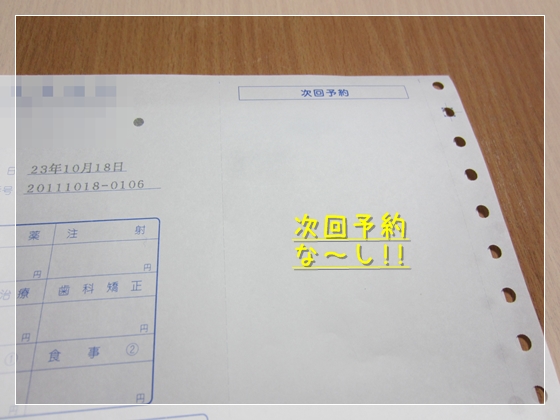 次回予約
日 23年10月18日
号 20111018-0106
次回予約
な～し!!
薬 注 射
円 円
治療 歯科矯正
円 円
① 食 事 ②
円